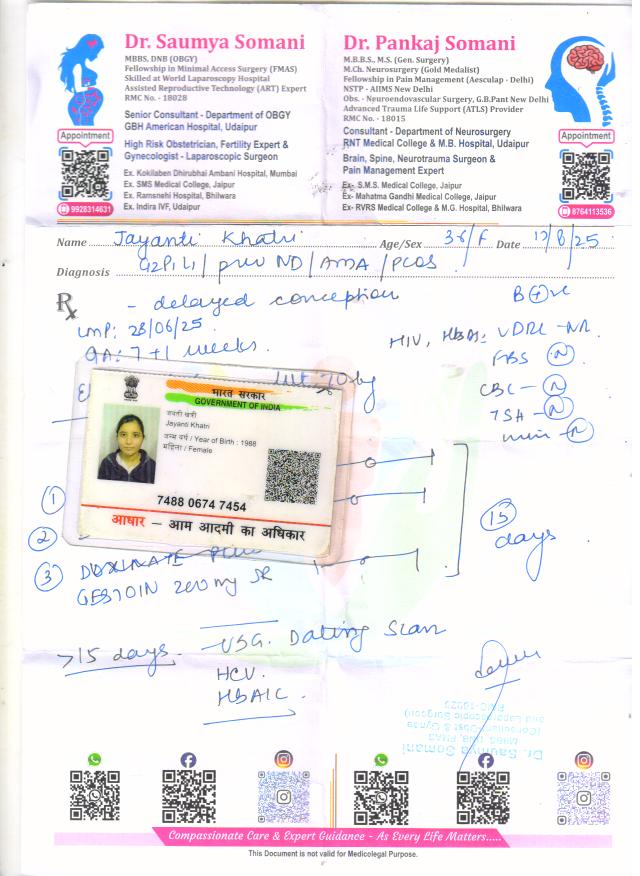 Dr. Saumya Somani
MBBS, DNB (OBGY)
Fellowship in Minimal Access Surgery (FMAS)
Skilled at World Laparoscopy Hospital
Assisted Reproductive Technology (ART) Expert
RMC No. - 18028
Senior Consultant - Department of OBGY
GBH American Hospital, Udaipur
High Risk Obstetrician, Fertility Expert &
Gynecologist - Laparoscopic Surgeon
Ex. Kokilaben Dhirubhai Ambani Hospital, Mumbai
Ex. SMS Medical College, Jaipur
Ex. Ramsnehi Hospital, Bhilwara
Ex. Indira IVF, Udaipur
Appointment
9928314631
Dr. Pankaj Somani
M.B.B.S., M.S. (Gen. Surgery)
M.Ch. Neurosurgery (Gold Medalist)
Fellowship in Pain Management (Aesculap - Delhi)
NSTP - AIIMS New Delhi
Obs. - Neuroendovascular Surgery, G.B.Pant New Delhi
Advanced Trauma Life Support (ATLS) Provider
RMC No. - 18015
Consultant - Department of Neurosurgery
RNT Medical College & M.B. Hospital, Udaipur
Brain, Spine, Neurotrauma Surgeon &
Pain Management Expert
Ex- S.M.S. Medical College, Jaipur
Ex- Mahatma Gandhi Medical College, Jaipur
Ex- RVRS Medical College & M.G. Hospital, Bhilwara
Appointment
8764113536
Name Jayanti Khatri Age/Sex 38/F Date 17/8/25
Diagnosis G2P1L1/ prev ND/AMA/PCOS
Rx - delayed conception B+ve
LMP: 28/06/25
GA: 7+1 weeks.
HIV, HBsAg, VDRL - NR
FBS N
CBC - N
TSH - N
N
भारत सरकार
GOVERNMENT OF INDIA
जयंती खत्री
Jayanti Khatri
जन्म वर्ष / Year of Birth : 1988
महिला / Female
7488 0674 7454
आधार - आम आदमी का अधिकार
1
2
3 DOXINATE PLUS
GESTOIN 200 mg SR
15 days
>15 days. USG. Dating Scan
HCV.
HBA1C.
Dr. Saumya Somani
MBBS, DNB, FMAS
(Consultant-Obst & Gynae
and Laparoscopic Surgeon)
Compassionate Care & Expert Guidance - As Every Life Matters.....
This Document is not valid for Medicolegal Purpose.